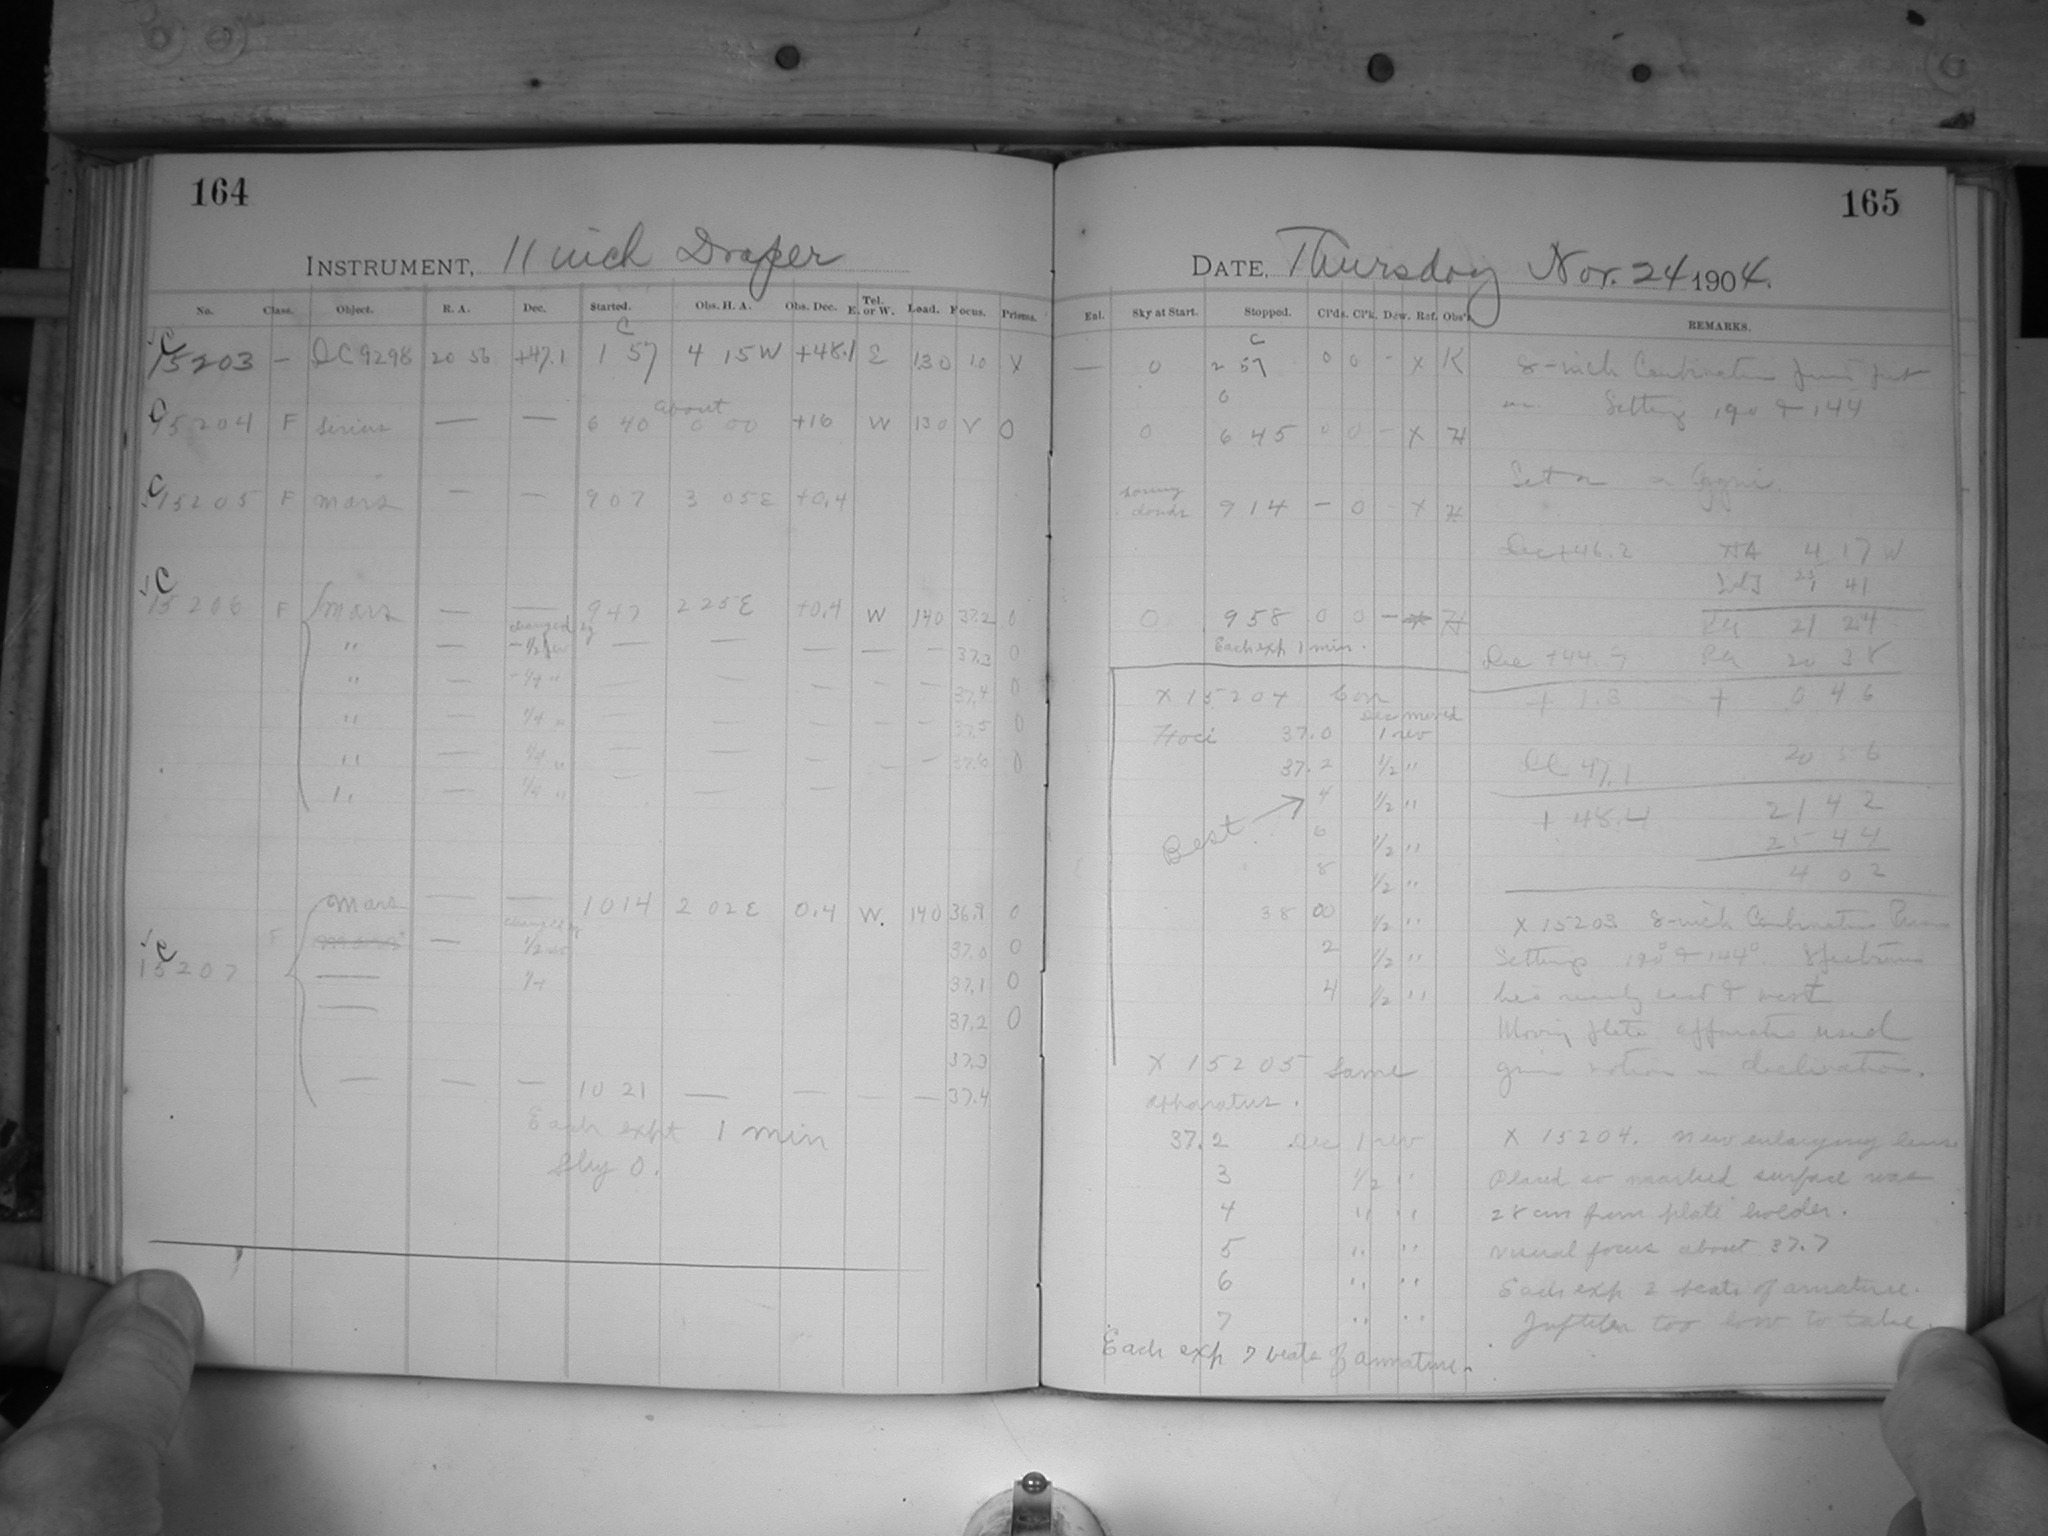 164
INSTRUMENT, 11 inch Draper
No. Class. Object. R. A. Dec. Started. Obs. H. A. Obs. Dec. Tel. E. or W. Load. Focus. Prisms.
C C
15203 — DC 9298 20 56 +47.1 1 57 4 15 W +48.1 E 130 10 X
C about
15204 F Sirius — — 6 40 0 00 +16 W 130 V O
C
15205 F Mars — — 9 07 3 05 E +0.4
C
15206 F Mars — — 9 47 2 25 E +0.4 W 140 37.2 0
changed by
" — -1/2 rev — — — — — 37.3 0
" — -1/4 " — — — — — 37.4 0
" — 1/4 " — — — — — 37.5 0
" — 1/4 " — — — — — 37.6 0
" — 1/4 " — — —
Mars — — 10 14 2 02 E 0.4 W. 140 36.9 0
changed by
F Mars — 1/2 rev 37.0 0
C
15207 — 1/4 37.1 0
— 37.2 0
37.3
— — — 10 21 — — — — 37.4
Each expt 1 min
Sky 0.
165
DATE, Thursday Nov. 24 1904.
Enl. Sky at Start. Stopped. Cl'ds. Cl'k. Dew. Ref. Obs'r. REMARKS.
C
— 0 2 57 0 0 - X K 8-inch Combination
0 Setting 190 & 144
0 6 45 0 0 - X H
Set on α Cygni.
clouds 9 14 — 0 - X H
Dec +46.2 HA 4 17 W
41
0 9 58 0 0 — X H RA 21 24
Each exp 1 min.
Dec +44.9 RA 20 38
X 15204 + 1.3 + 0 46
Dec moved
Foci 37.0 1 rev
DC 47.1 20 56
37.2 1/2 "
Best → 4 1/2 " + 48.4 21 42
6 1/2 " 25 44
8 1/2 " 4 02
38 00 1/2 " X 15203 8-inch Combination
2 1/2 " Settings 190° & 144°. Spectrum
4 1/2 " lies nearly east & west
Moving plate apparatus used
X 15205 Same motion in declination.
apparatus.
37.2 Dec 1 rev X 15204. New enlarging lens
3 1/2 " Placed so marked surface was
4 " " 28 cm from plate holder.
5 " " Visual focus about 37.7
6 " " Each exp 2 beats of armature.
7 " " Jupiter too low to take.
Each exp 7 beats of armature.